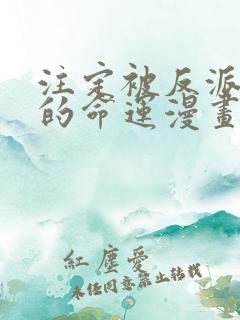 注定被反派
的命运漫畫
紅塵愛
未经同意禁止转载